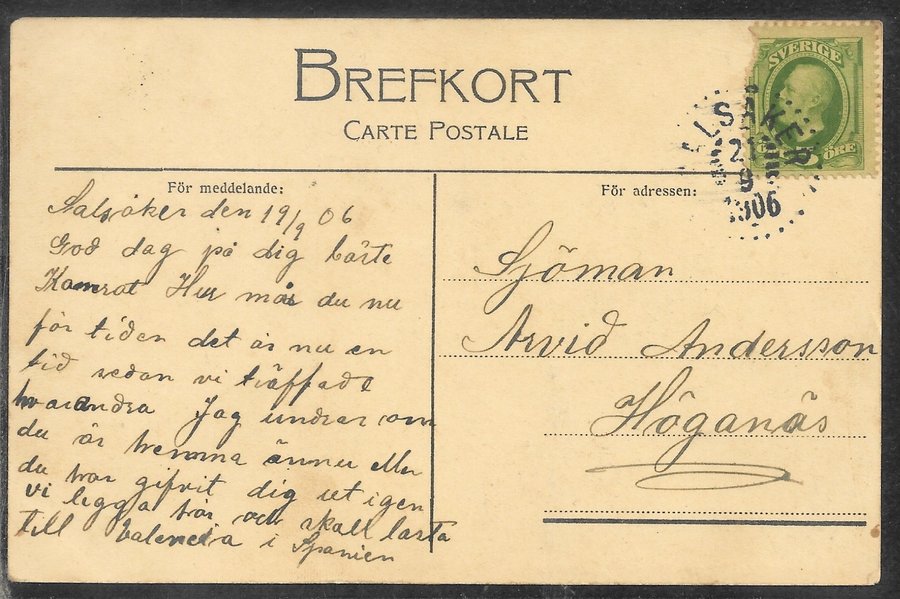 BREFKORT
CARTE POSTALE
SVERIGE
ÖRE
ALSÅKER
21
9
1906
För meddelande:
Salsåker den 19/9 06
God dag på dig bäste
Kamrat Hur mår du nu
för tiden det är nu en
tid sedan vi träffade
hvarandra Jag undrar om
du är hemma ännu eller
du har gifvit dig ut igen
vi ligga här och skall lasta
till Valencia i Spanien
För adressen:
Sjöman
Arvid Andersson
Höganäs